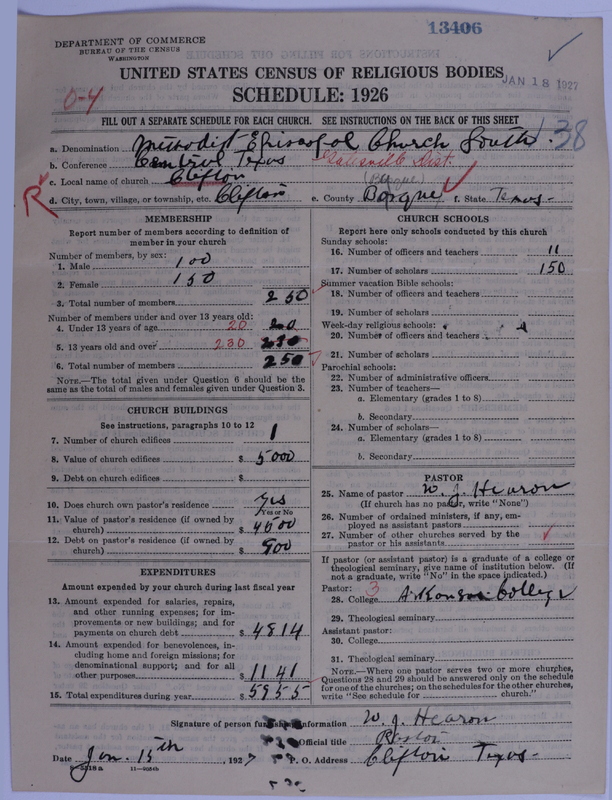 13406
DEPARTMENT OF COMMERCE
BUREAU OF THE CENSUS
WASHINGTON
UNITED STATES CENSUS OF RELIGIOUS BODIES
JAN 18 1927
SCHEDULE: 1926
0-4
FILL OUT A SEPARATE SCHEDULE FOR EACH CHURCH. SEE INSTRUCTIONS ON THE BACK OF THIS SHEET
138
a. Denomination Methodist Episcopal Church South.
b. Conference Central Texas Gatesville Dist.
c. Local name of church Clifton (Bosque)
d. City, town, village, or township, etc. Clifton e. County Bosque f. State Texas-
R
MEMBERSHIP
Report number of members according to definition of
member in your church
Number of members, by sex:
1. Male 100
2. Female 150
3. Total number of members 250
Number of members under and over 13 years old:
4. Under 13 years of age 20 20
5. 13 years old and over 230 230
6. Total number of members 250
NOTE.—The total given under Question 6 should be
same as the total of males and females given under Question 3.
CHURCH BUILDINGS
See instructions, paragraphs 10 to 12
7. Number of church edifices 1
8. Value of church edifices $ 5000
9. Debt on church edifices $
10. Does church own pastor's residence Yes
Yes or No
11. Value of pastor's residence (if owned by
church) $ 4000
12. Debt on pastor's residence (if owned by
church) $ 900
EXPENDITURES
Amount expended by your church during last fiscal year
13. Amount expended for salaries, repairs,
and other running expenses; for im-
provements or new buildings; and for
payments on church debt $ 4814
14. Amount expended for benevolences, in-
cluding home and foreign missions; for
denominational support; and for all
other purposes $ 1141
15. Total expenditures during year $ 5955
CHURCH SCHOOLS
Report here only schools conducted by this church
Sunday schools:
16. Number of officers and teachers 11
17. Number of scholars 150
Summer vacation Bible schools:
18. Number of officers and teachers
19. Number of scholars
Week-day religious schools:
20. Number of officers and teachers
21. Number of scholars
Parochial schools:
22. Number of administrative officers
23. Number of teachers—
a. Elementary (grades 1 to 8)
b. Secondary
24. Number of scholars—
a. Elementary (grades 1 to 8)
b. Secondary
PASTOR
25. Name of pastor W. J. Hearon
(If church has no pastor, write "None")
26. Number of ordained ministers, if any, em-
ployed as assistant pastors
27. Number of other churches served by the
pastor or his assistants
If pastor (or assistant pastor) is a graduate of a college or
theological seminary, give name of institution below. (If
not a graduate, write "No" in the space indicated.)
Pastor: 3
28. College Arkansas College
29. Theological seminary
Assistant pastor:
30. College
31. Theological seminary
NOTE.—Where one pastor serves two or more churches,
Questions 28 and 29 should be answered only on the schedule
for one of the churches; on the schedules for the other churches,
write "See schedule for church."
Signature of person furnishing information W. J. Hearon
Official title Pastor
Date Jan. 15th 1927 P. O. Address Clifton Texas-